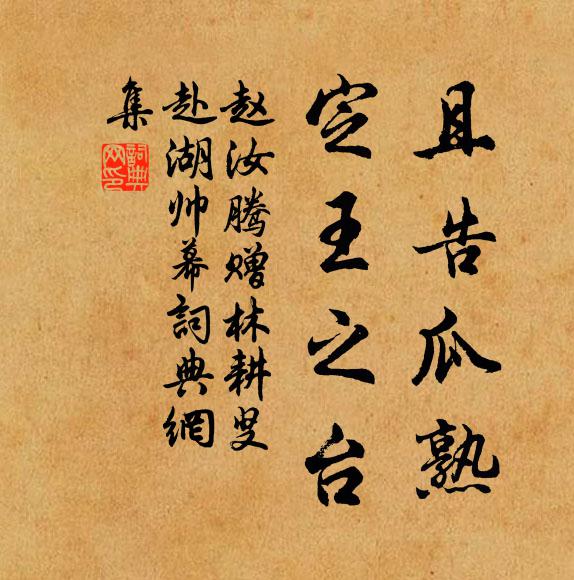 且告瓜熟
定王之台
赵汝腾赠林耕叟
赴湖帅幕詞典網
集
詞典網印